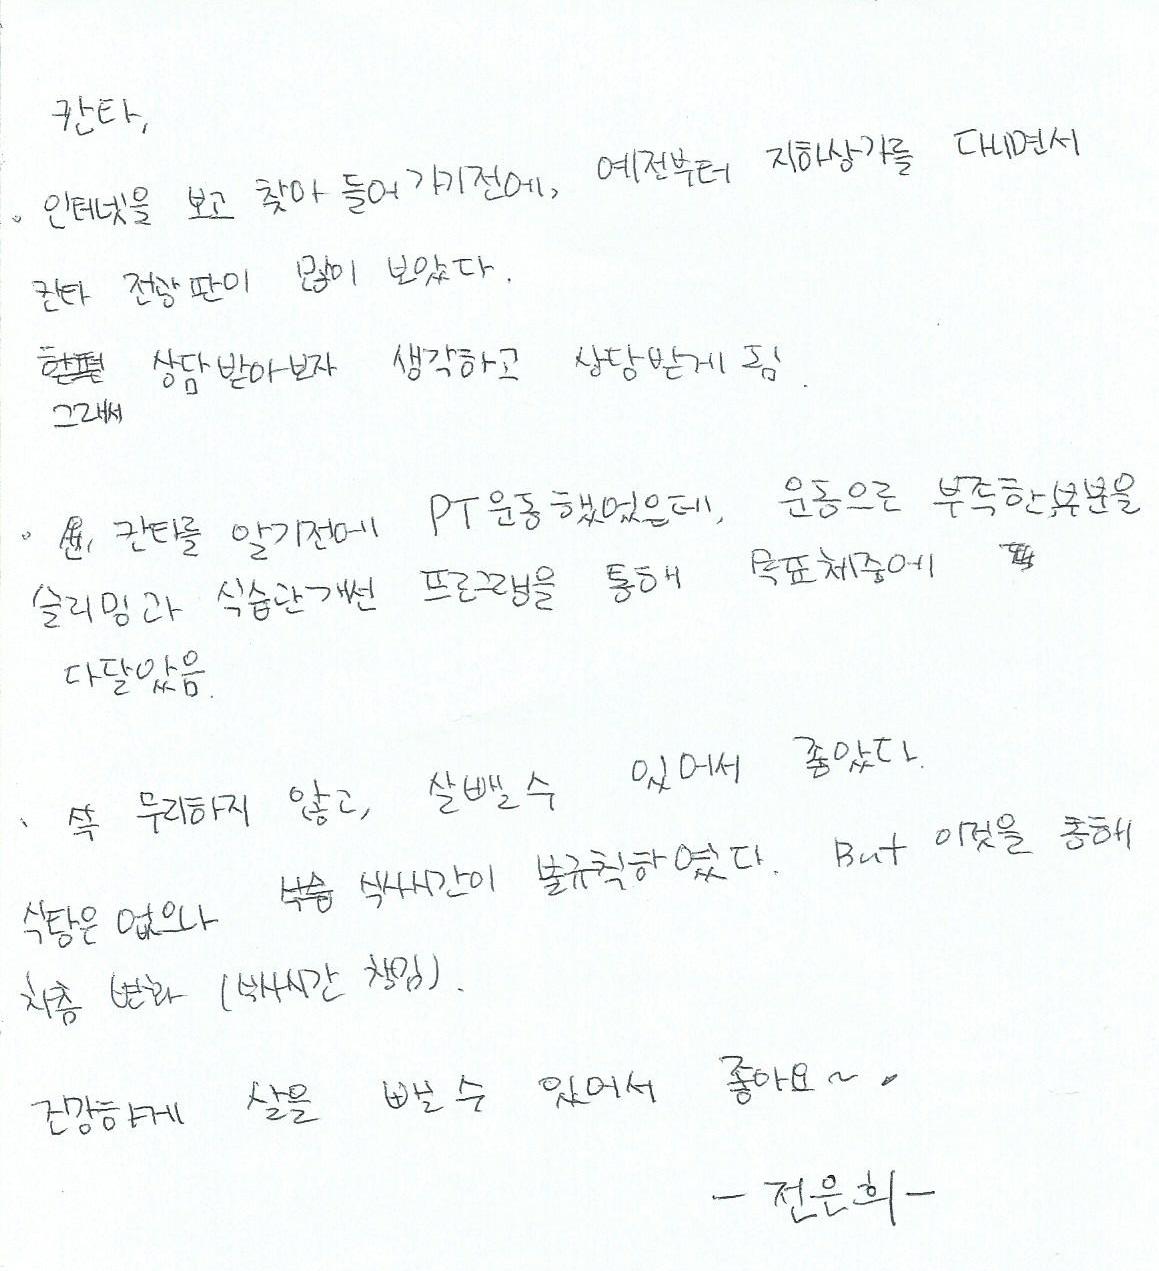 칸타,
· 인터넷을 보고 찾아 들어가기전에, 예전부터 지하상가를 다니면서
칸타 전광판이 많이 보았다.
상담받아보자 생각하고 상담받게 됨.
그래서
· 칸타를 알기전에 PT운동했었은데, 운동으로 부족한부분을
슬리밍과 식습관개선 프로그램을 통해 목표체중에
다달았음.
· 무리하지 않고, 살뺄 수 있어서 좋았다.
식탐은 없으나 식사시간이 불규칙하였다. But 이것을 통해
차츰 변화 (식사시간 책임).
건강하게 살을 뺄 수 있어서 좋아요~.
- 전은희 -